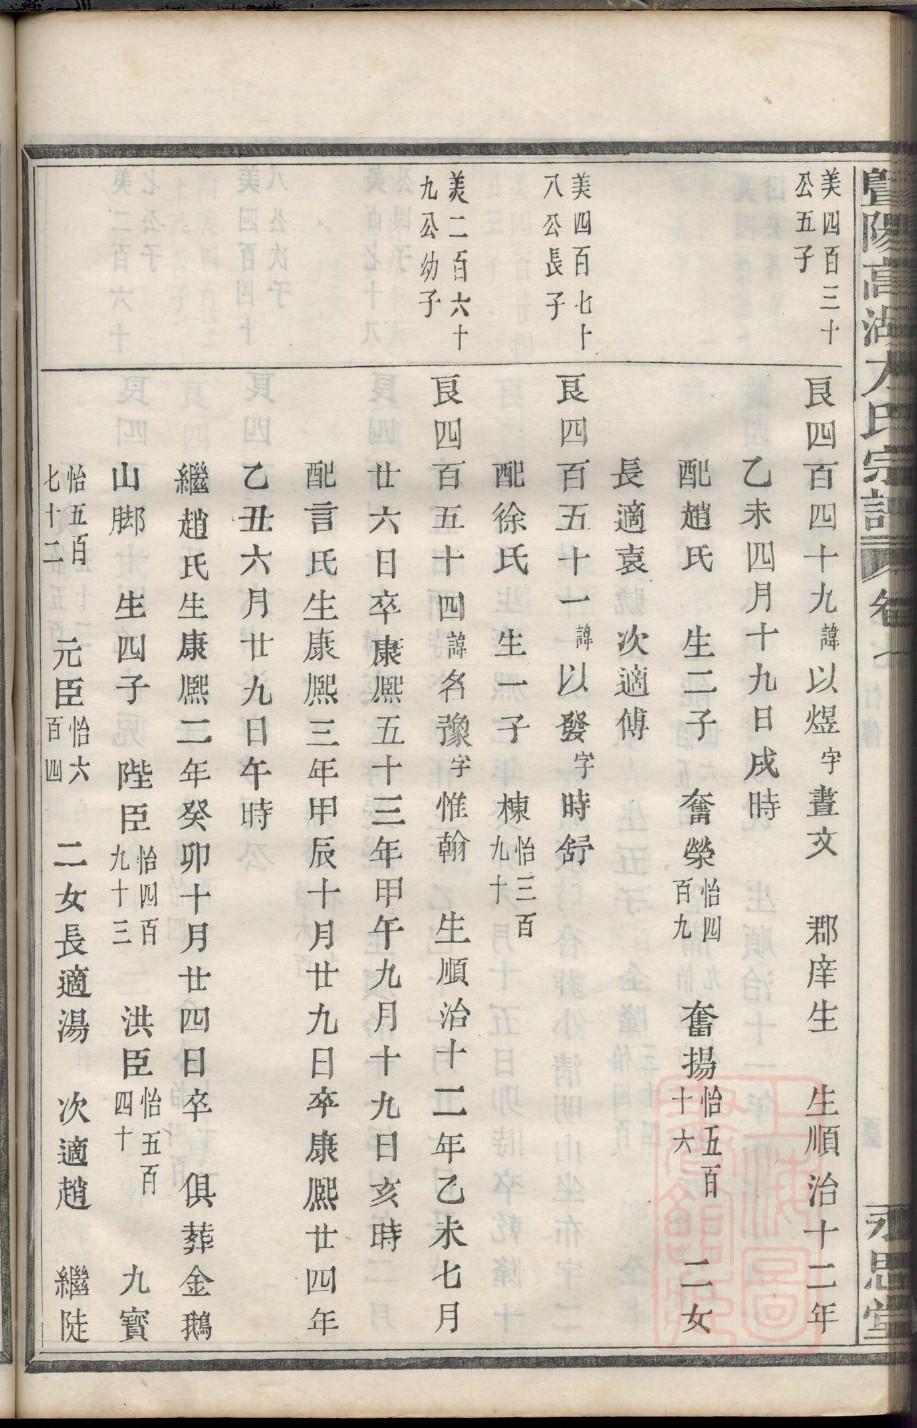 暨陽高湖方氏宗譜 卷
永思堂
美四百三十
公五子
良四百四十九諱以煜字晝文 郡庠生 生順治十二年
乙未四月十九日戌時
配趙氏 生二子 奮榮怡四百九 奮揚怡五百十六 二女
長適袁 次適傅
美四百七十
八公長子
良四百五十一諱以發字時舒
配徐氏 生一子 棟怡三百九十
美二百六十
九公幼子
良四百五十四諱名豫字惟翰 生順治十二年乙未七月
廿六日卒康熙五十三年甲午九月十九日亥時
配言氏生康熙三年甲辰十月廿九日卒康熙廿四年
乙丑六月廿九日午時
繼趙氏生康熙二年癸卯十月廿四日卒 俱葬金鵝
山脚 生四子 陛臣怡四百九十三 洪臣怡五百四十 九寳
怡五百七十二 元臣怡六百四 二女長適湯 次適趙 繼陡